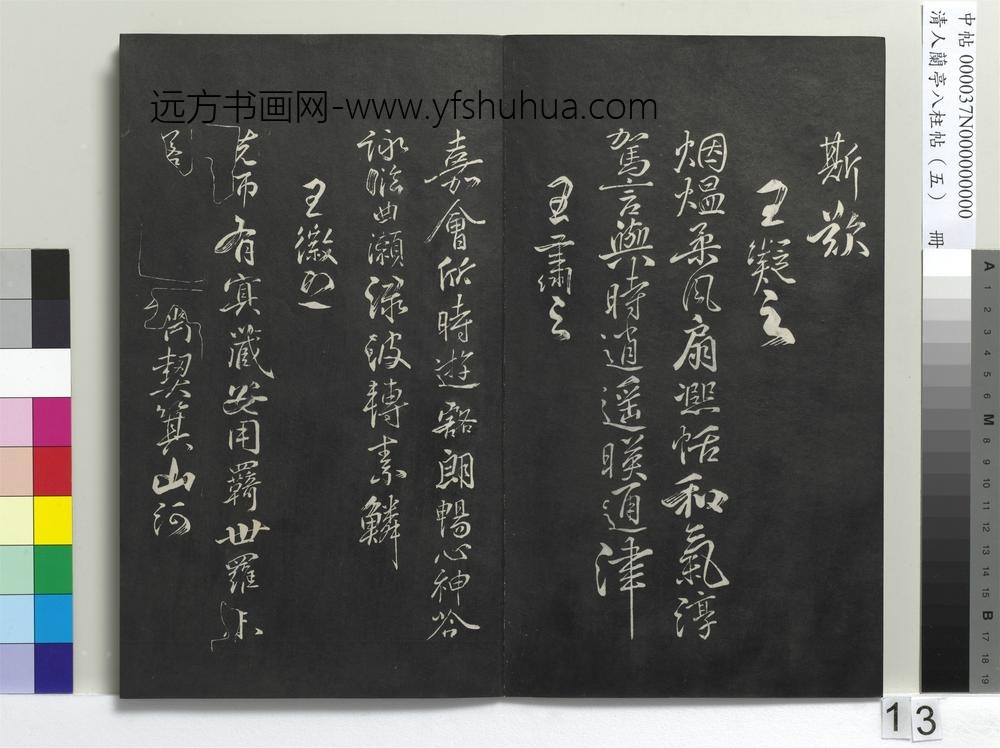 远方书画网-www.yfshuhua.com
斯歎
王凝之
烟熅柔風扇熙恬和氣淳
駕言興時逍遙暎通津
王肅之
嘉會欣時遊豁朗暢心神吟
詠臨曲瀨淥波轉素鱗
王徽之
先師有冥藏安用羈世羅未
若
齊契箕山河
中帖 000037N000000000
清人蘭亭八柱帖(五) 冊
A 1 2 3 4 5 6 M 8 9 10 11 12 13 14 15 B 17 18 19
13